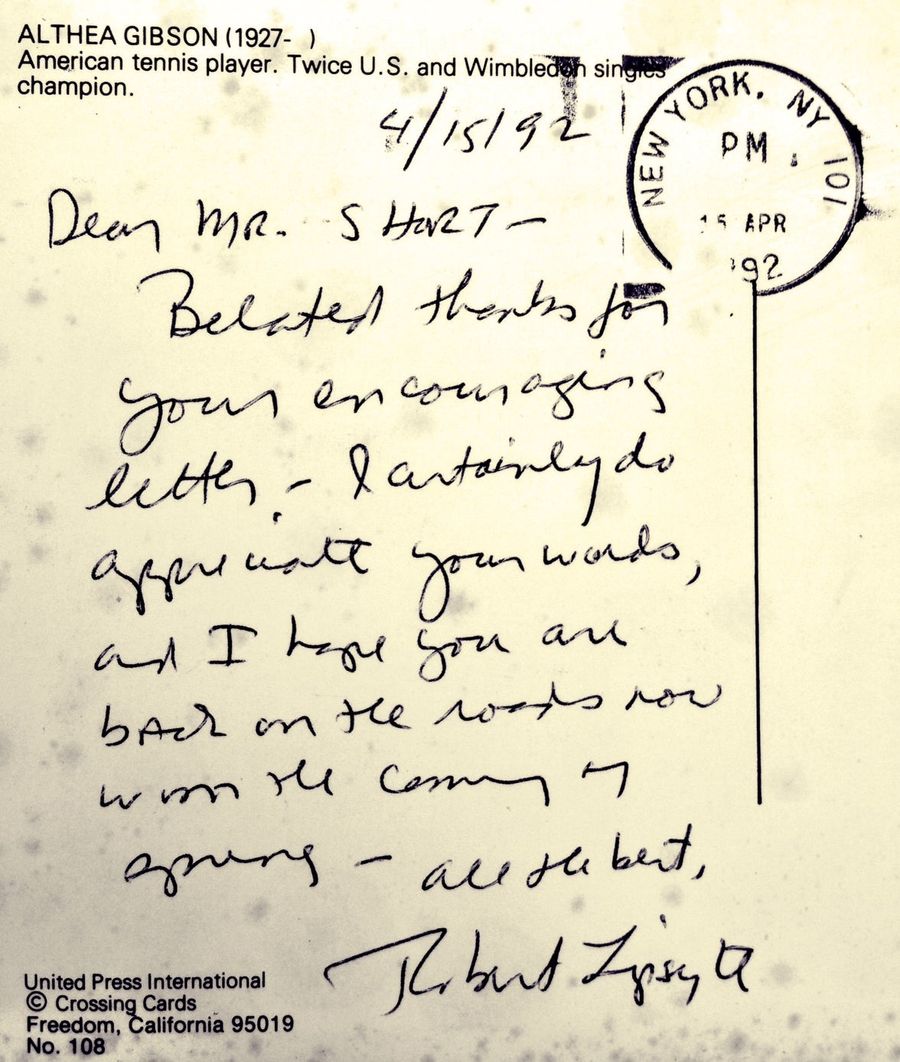 ALTHEA GIBSON (1927-   )
American tennis player. Twice U.S. and Wimbledon singles
champion.
4/15/92
NEW YORK, NY 101
PM
15 APR
'92
Dear MR. SHORT –
Belated thanks for
your encouraging
letter – I certainly do
appreciate your words,
and I hope you are
back on the roads now
with the coming of
spring – all the best,
Robert Lipsyte
United Press International
© Crossing Cards
Freedom, California 95019
No. 108